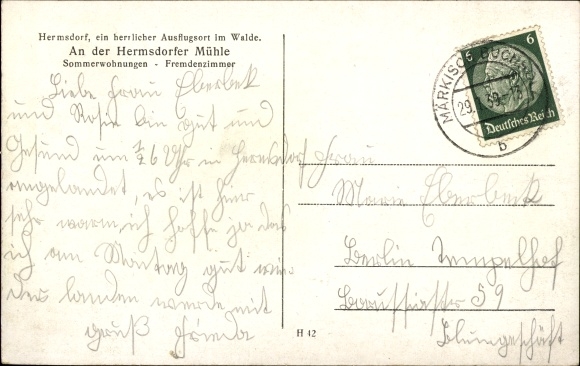 Hermsdorf, ein herrlicher Ausflugsort im Walde.
An der Hermsdorfer Mühle
Sommerwohnungen - Fremdenzimmer
Liebe Frau Eberbek
und Rosie bin gut und
Gesund um ½6 Uhr in Hermsdorf
angelandet, es ist hier
sehr warm, ich hoffe ja das
ich am Montag gut wie-
der landen werde mit
gruß Frieda
MÄRKISCH BUCHHOLZ
29.
39
b
6 6
Deutsches Reich
Frau
Marie Eberbek
Berlin Tempelhof
Borussiastr 59
Blumgeschäft
H 42